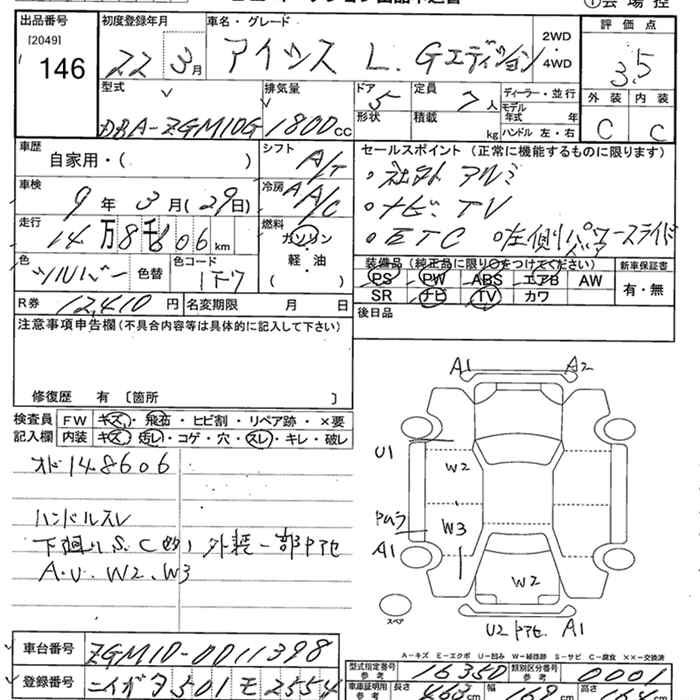 出品番号 初度登録年月 車名・グレード 評価点
[2049]
146 22 3月 アイシス L. Gエディション 2WD・4WD 3.5
型式 排気量 ドア 5 定員 7人 ディーラー・並行 外装 内装
DBA-ZGM10G 1800cc 形状 積載 kg モデル年式 年 ハンドル 左・右 C C
車歴 自家用・( ) シフト A/T セールスポイント (正常に機能するものに限ります)
車検 9年 3月(29日) 冷房 A A/C ・社外アルミ
・ナビ. TV
走行 14万8千606km 燃料 ガソリン ・ETC ・左側パワースライド
色 シルバー 色替 色コード 1F7 軽・油 ( )
装備品 (純正品に限り○をつけてください) 新車保証書
PS PW ABS エアB AW 有・無
SR ナビ TV カワ
R券 12,410円 名変期限 月 日 後日品
注意事項申告欄 (不具合内容等は具体的に記入して下さい)
修復歴 有 〔箇所 〕
検査員 FW キズ・飛石・ヒビ割・リペア跡・×要
記入欄 内装 キズ・汚レ・コゲ・穴・スレ・キレ・破レ
オド148606
ハンドルスレ
下廻りS.C(的) 外装一部ドアセ
A.U. W2. W3
A1 A2
U1 W2
W3
A1 W2
スペア
U2 A1
A-キズ E-エクボ U-凹み W-補修跡 S-サビ C-腐食 ××-交換済
車台番号 ZGM10-0011398
型式指定番号 参考 16350 類別区分番号 参考 0001
登録番号 501 モ 2554
車庫証明用 参考 長さ cm 幅 169cm 高さ cm